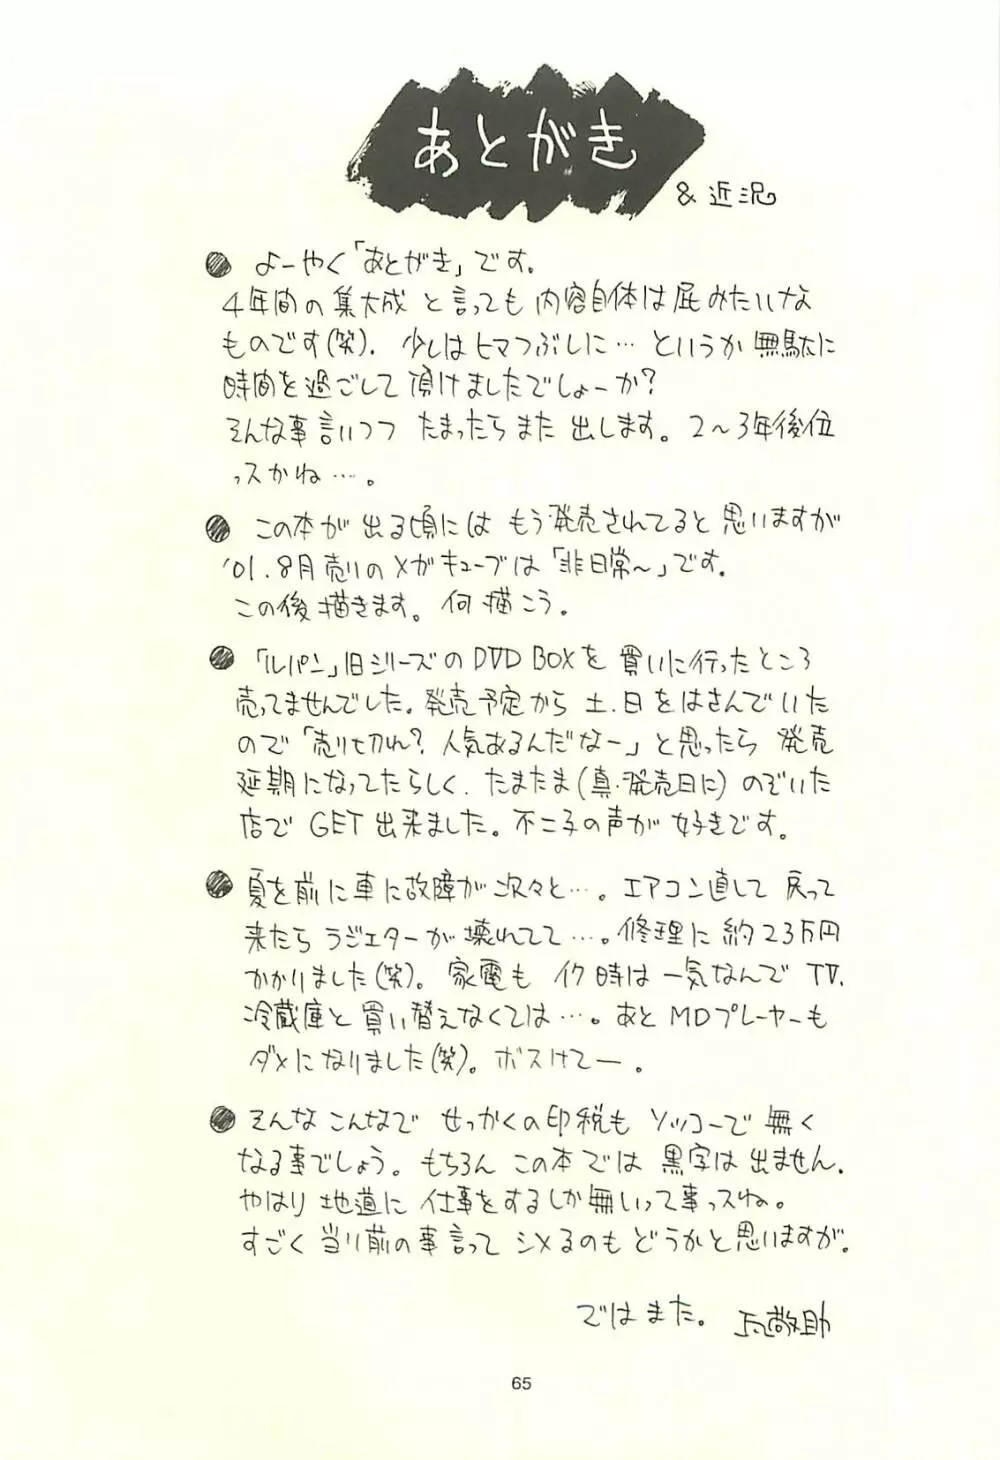 あとがき
&近況
● よーやく「あとがき」です。
4年間の集大成 と言っても 内容自体は屁みたいな
ものです(笑)。少しはヒマつぶしに… というか 無駄に
時間を過ごして頂けましたでしょーか?
そんな事言いつつ たまったらまた 出します。2〜3年後位
っスかね…。
● この本が 出る頃には もう発売されてると 思いますが
'01.8月売りのメガキューブは「非日常〜」です。
この後描きます。何描こう。
● 「ルパン」旧シリーズのDVD BOXを 買いに行ったところ
売ってませんでした。発売予定から 土.日をはさんでいた
ので「売り切れ?人気あるんだなー」と思ったら 発売
延期になってたらしく. たまたま(真・発売日に) のぞいた
店で GET 出来ました。不二子の声が 好きです。
● 夏を前に車に故障が次々と…。エアコン直して 戻って
来たら ラジエターが壊れてて…。修理に約23万円
かかりました(笑)。家電も イク時は 一気なんで TV.
冷蔵庫と 買い替えなくては…。あと MDプレーヤーも
ダメになりました(笑)。ボスけてー。
● そんなこんなで せっかくの印税も ソッコーで 無く
なる事でしょう。もちろん この本では 黒字は出ません.
やはり 地道に 仕事をするしか無いって事っスね。
すごく 当り前の事言って シメるのも どうかと思いますが。
ではまた。
敬助
65